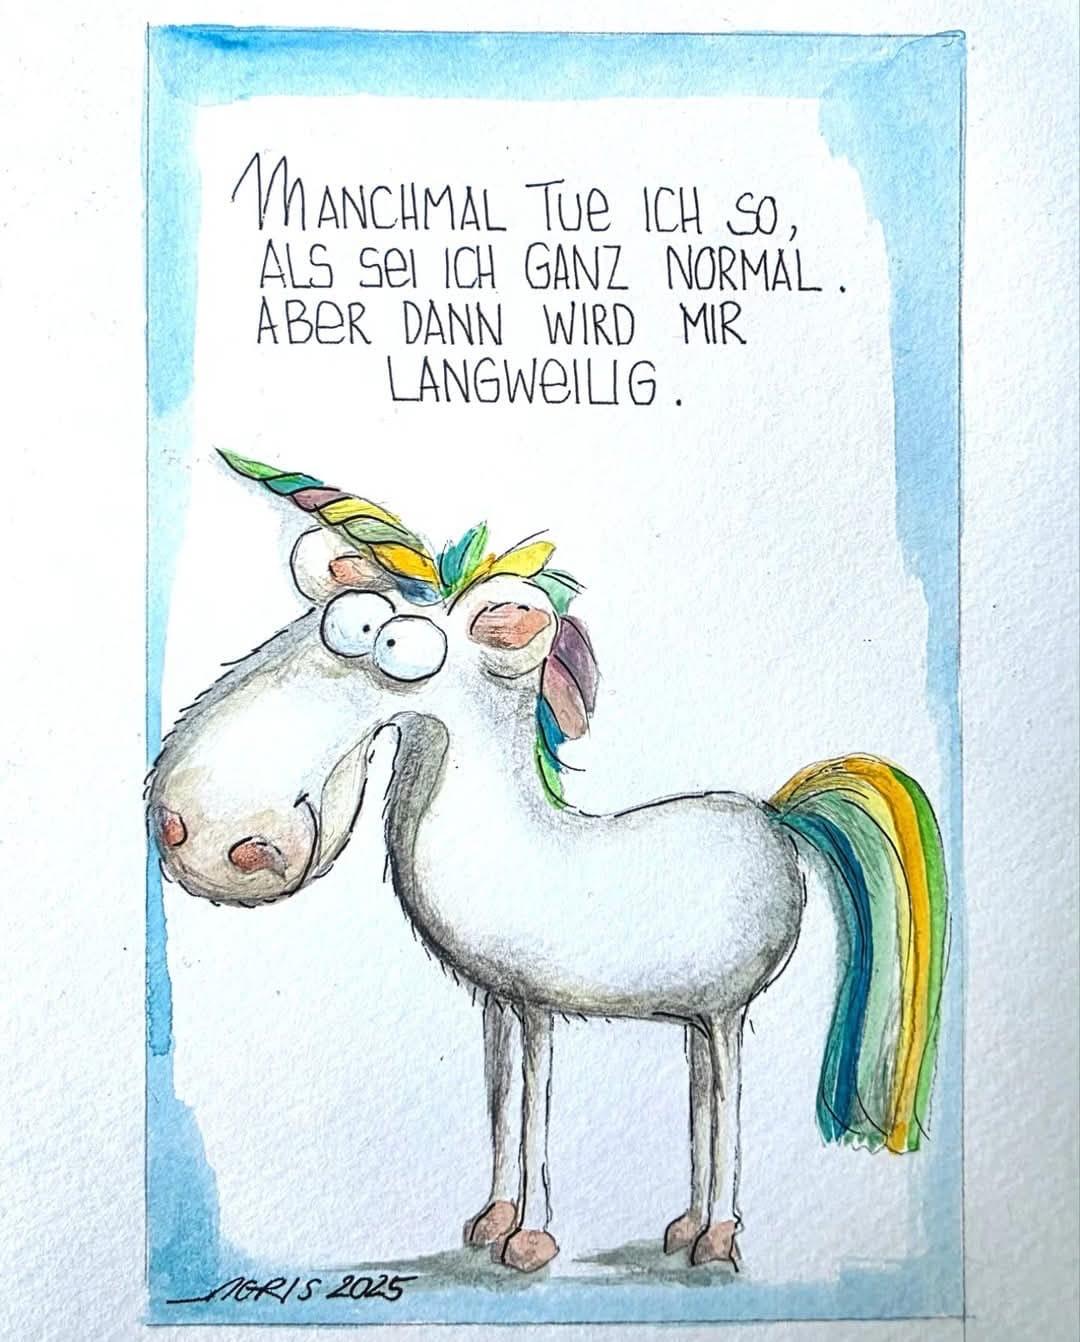 MANCHMAL TUE ICH SO,
ALS SEI ICH GANZ NORMAL.
ABER DANN WIRD MIR
LANGWEILIG.
AGRIS 2025